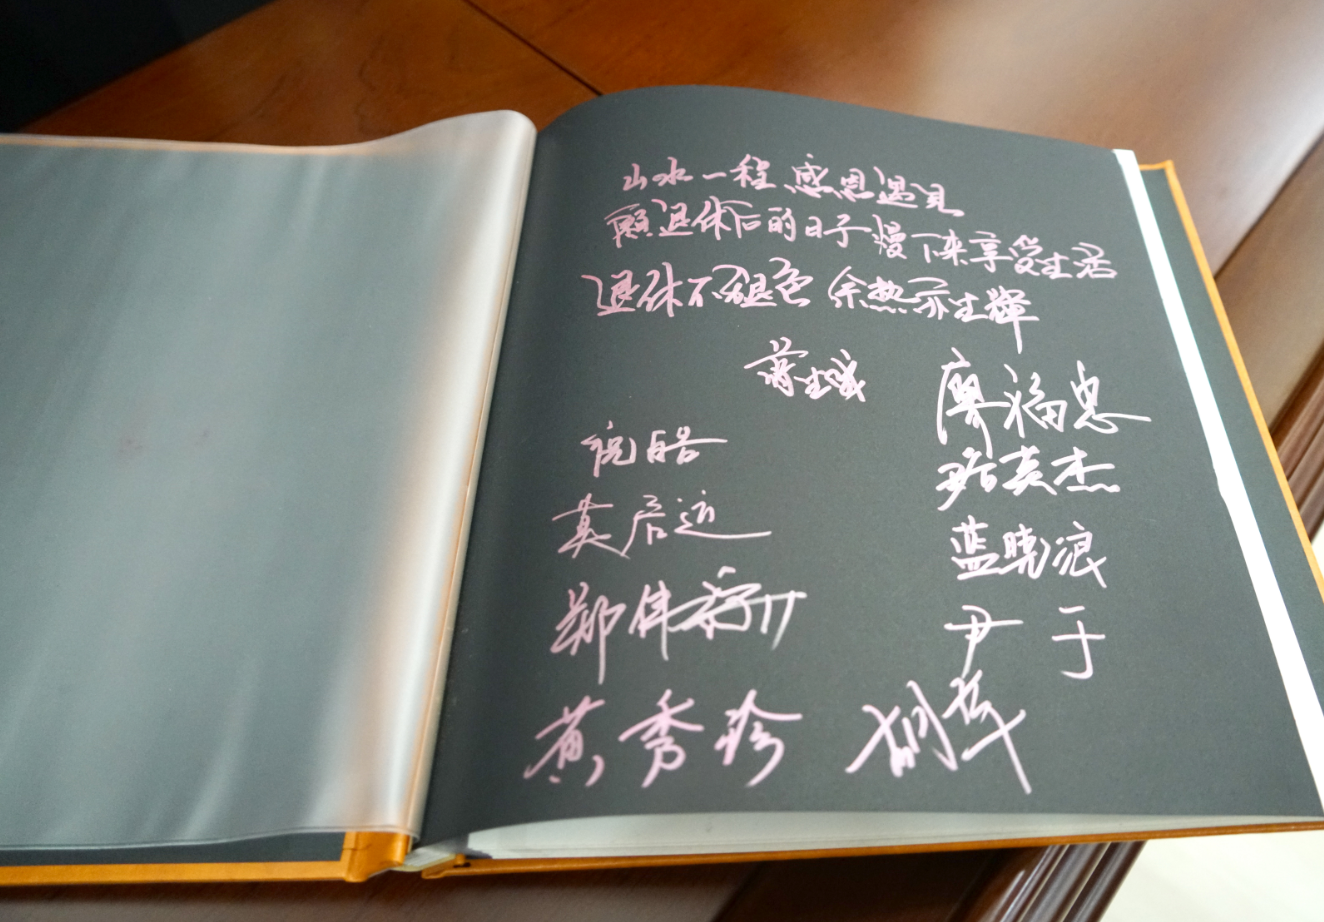 山水一程 感恩遇见
愿退休后的日子慢下来享受生活
退休不褪色 余热亦生辉
廖福忠
祝皓
英杰
莫启运
蓝晓浪
郑伟
尹于
黄秀珍
胡華